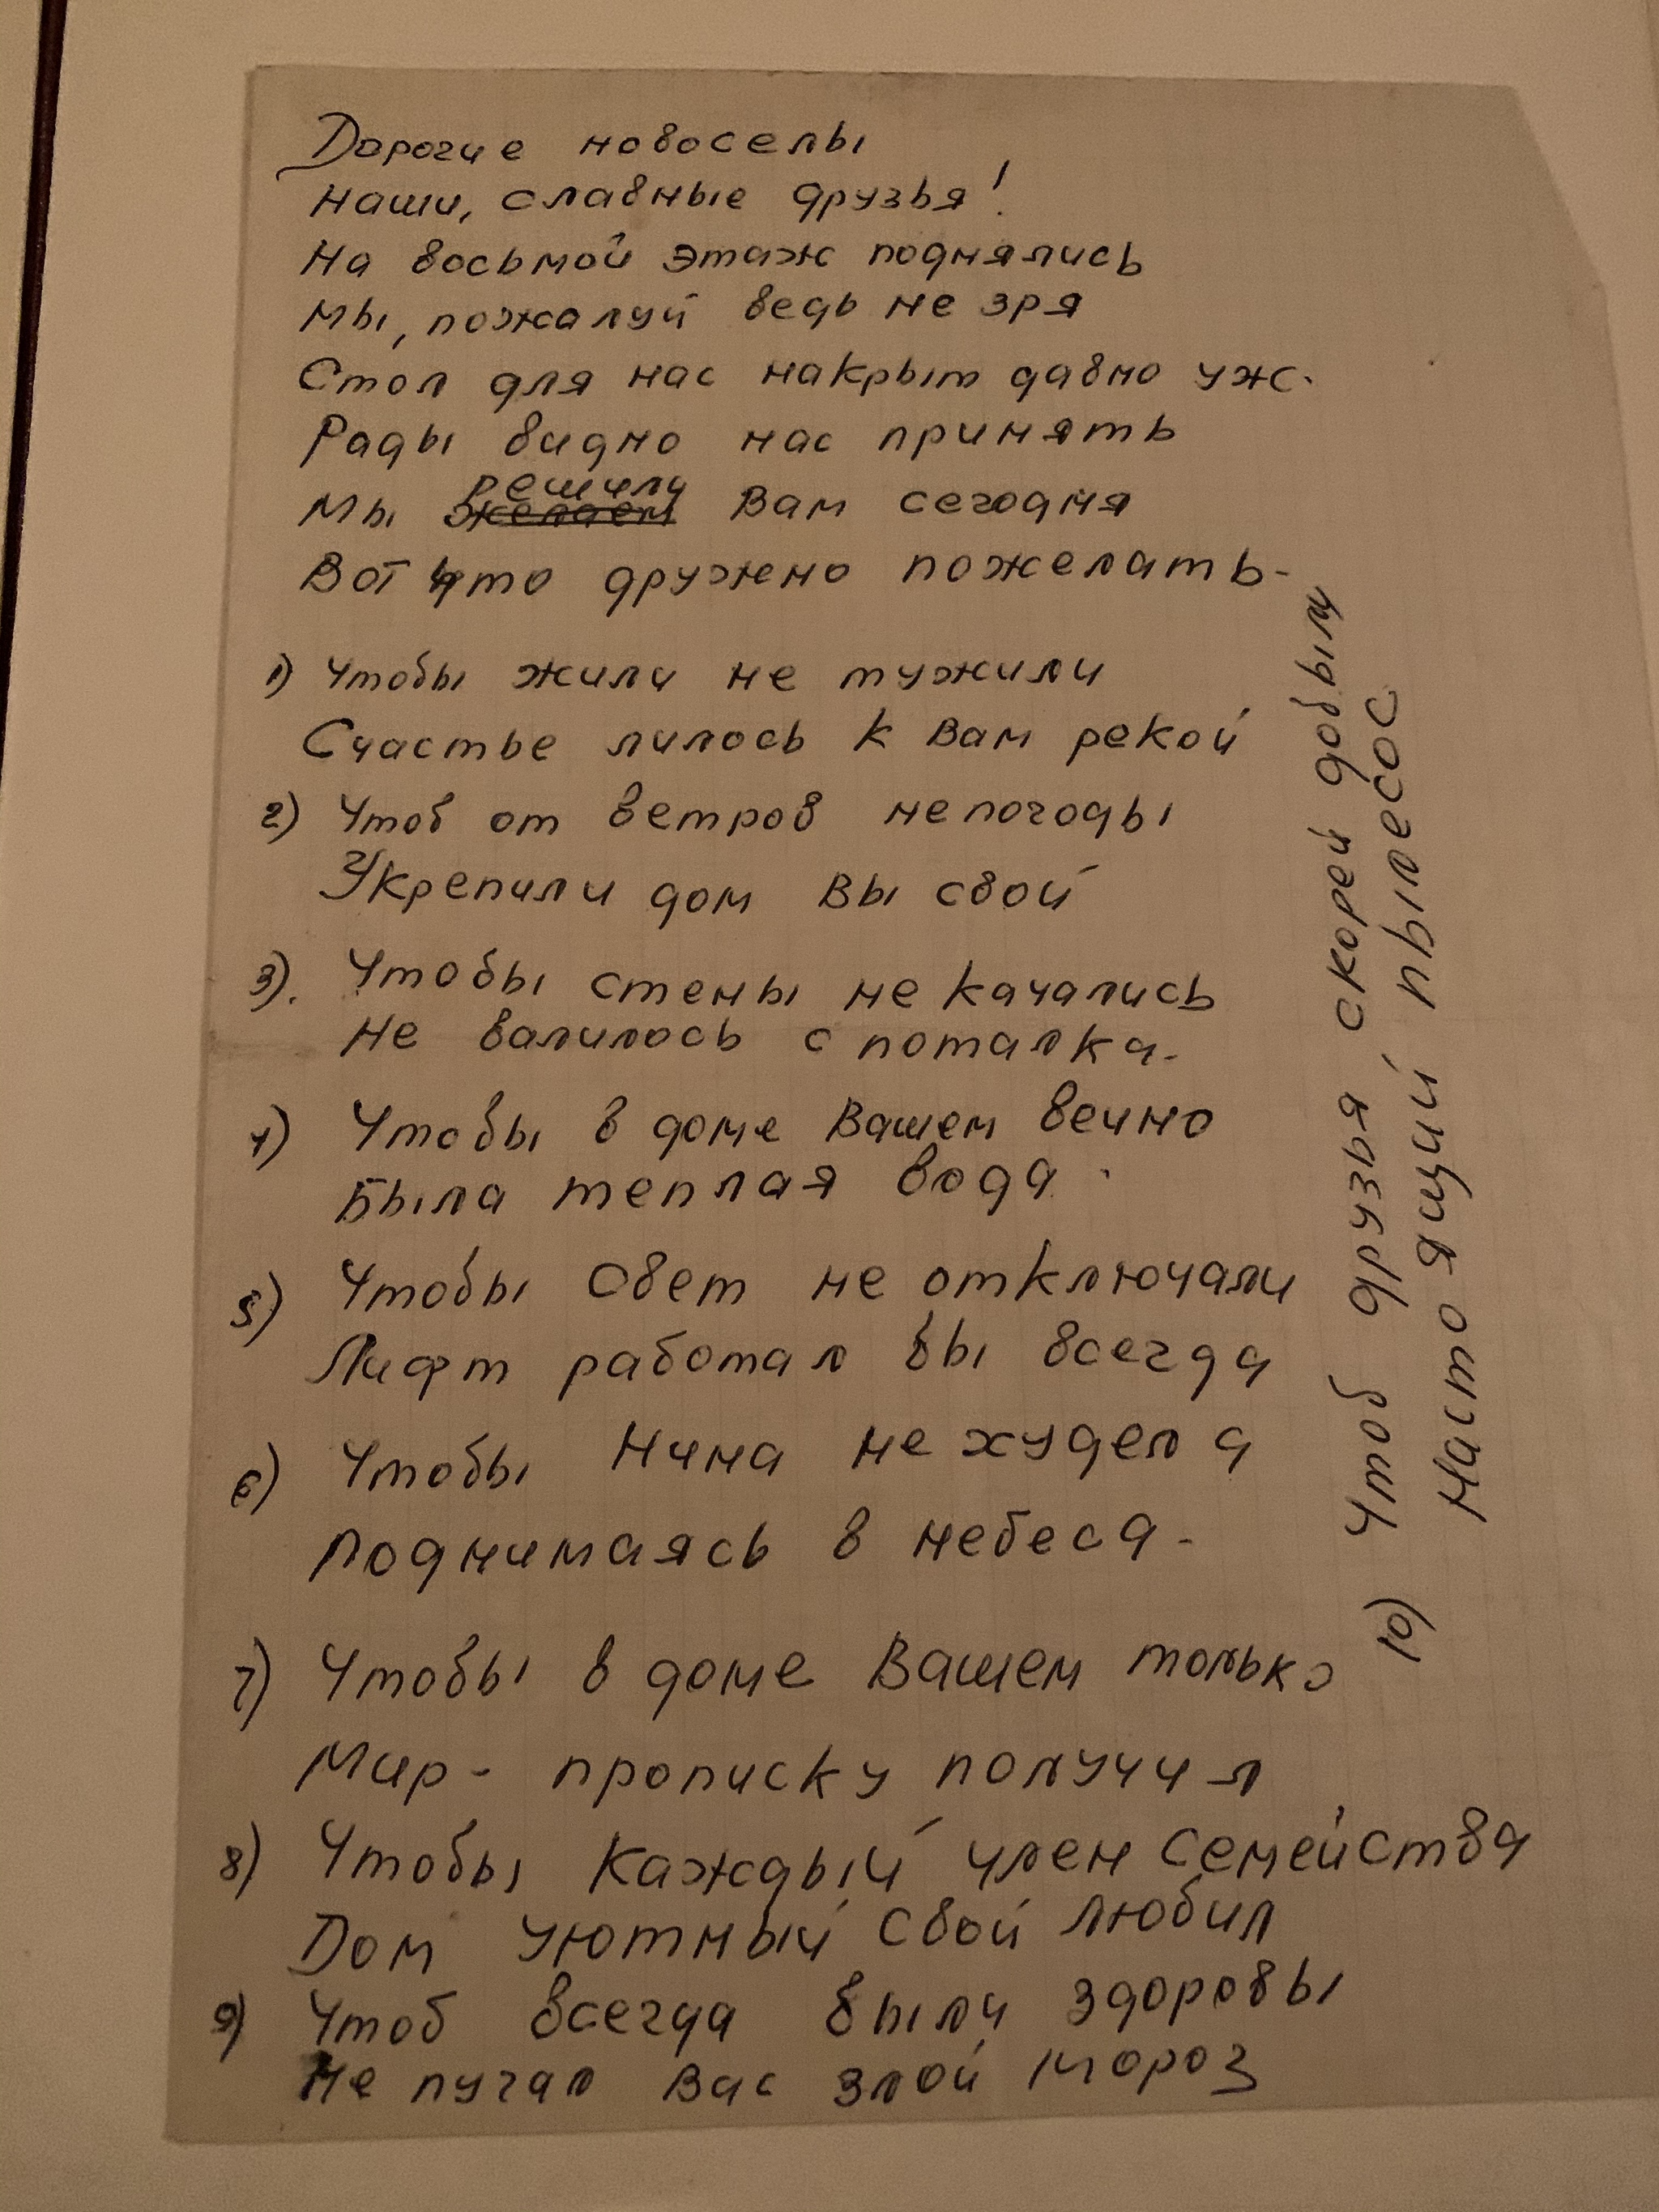 Дорогие новоселы
Наши, славные друзья!
На восьмой этаж поднялись
Мы, пожалуй ведь не зря
Стол для нас накрыт давно уж.
Рады видно нас принять
решили
Мы желаем Вам сегодня
Вот что дружно пожелать-
1) Чтобы жили не тужили
Счастье лилось к Вам рекой
2) Чтоб от ветров непогоды
Укрепили дом Вы свой
3). Чтобы стены не качались
Не валилось с поталка.
4) Чтобы в доме Вашем вечно
Была теплая вода.
5) Чтобы свет не отключали
Лифт работал бы всегда
6) Чтобы Нина не худела
Поднимаясь в небеса.
7) Чтобы в доме Вашем только
Мир - прописку получил
8) Чтобы каждый член семейства
Дом уютный свой любил
9) Чтоб всегда были здоровы
Не пугал Вас злой мороз
10) Чтоб друзья, скорей добыли
Настоящий пылесос